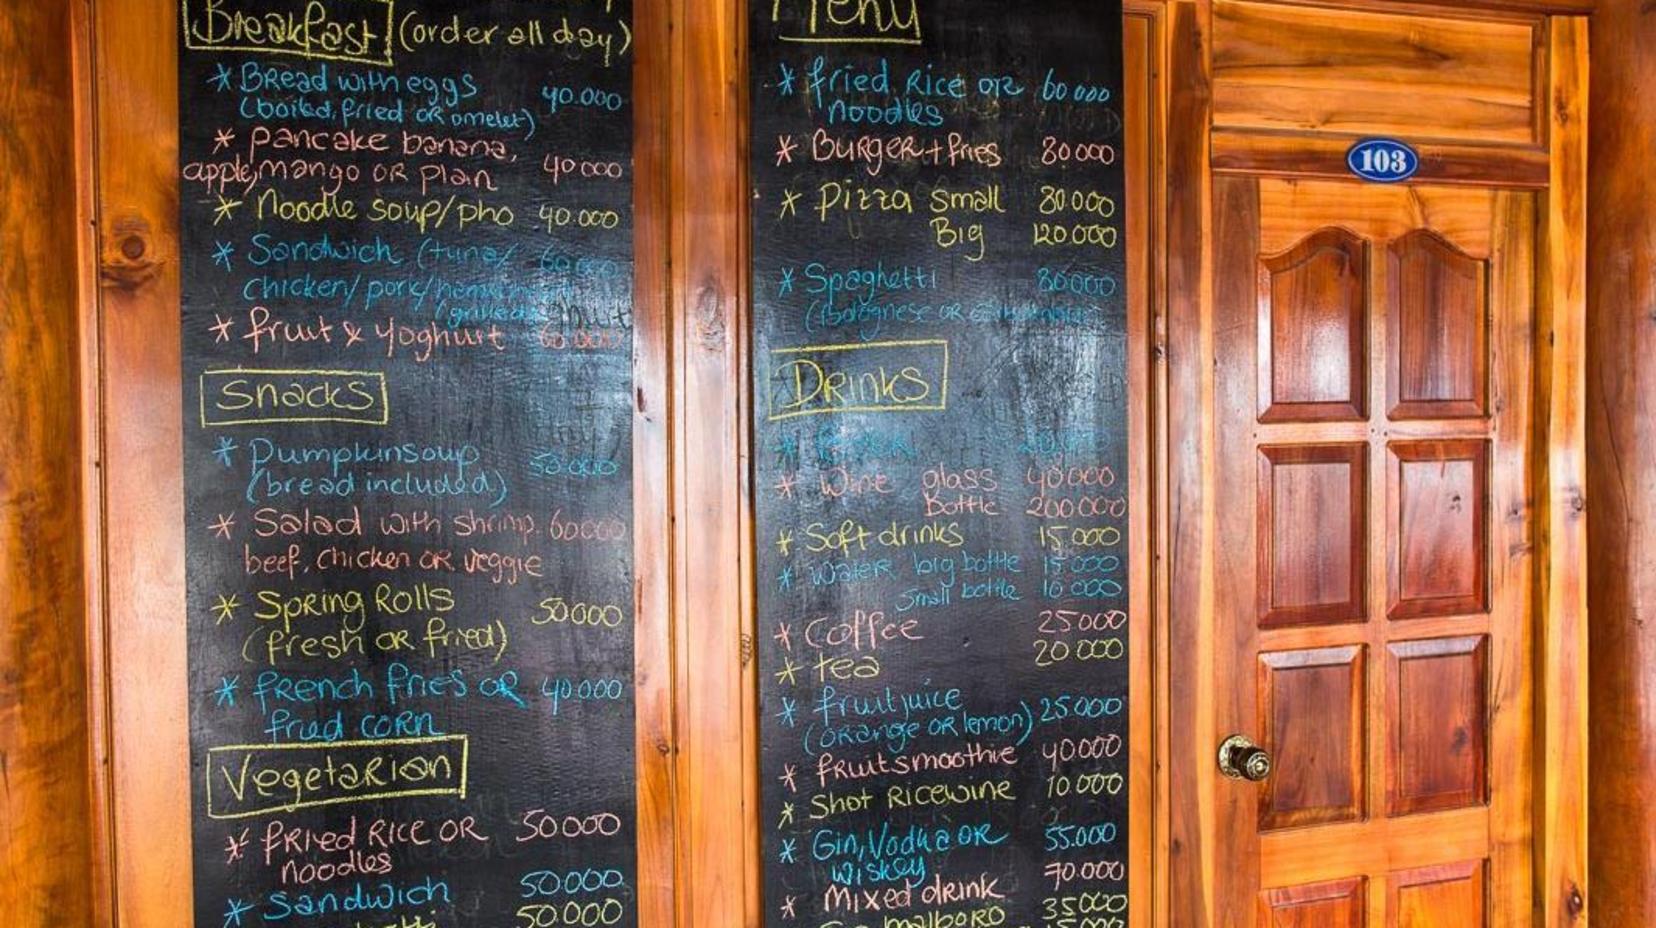 Breakfast (order all day)
* Bread with eggs 40.000
(boiled, fried or omelet)
* pancake banana,
apple, mango or plain 40000
* Noodle soup/pho 40.000
* Sandwich (tuna/
chicken/pork/
* fruit & yoghurt 60.000
Snacks
* Pumpkinsoup 50.000
(bread included)
* Salad with shrimp. 60000
beef, chicken or veggie
* Spring Rolls 50000
(fresh or fried)
* french fries or 40.000
fried corn
Vegetarian
* fried Rice or 50000
noodles
* Sandwich 50.000
50.000
Menu
* fried Rice or 60000
noodles
* Burger + fries 80000
* pizza small 80000
Big 120.000
* Spaghetti 80000
(bolognese or
Drinks
* Wine glass 40000
Bottle 200000
* Soft drinks 15.000
* Water big bottle 15.000
Small bottle 10.000
* Coffee 25000
* tea 20000
* fruitjuice
(orange or lemon) 25.000
* fruitsmoothie 40.000
* Shot Ricewine 10.000
* Gin, Vodka or 55.000
wiskey
* Mixed drink 70.000
malboro 35000
103